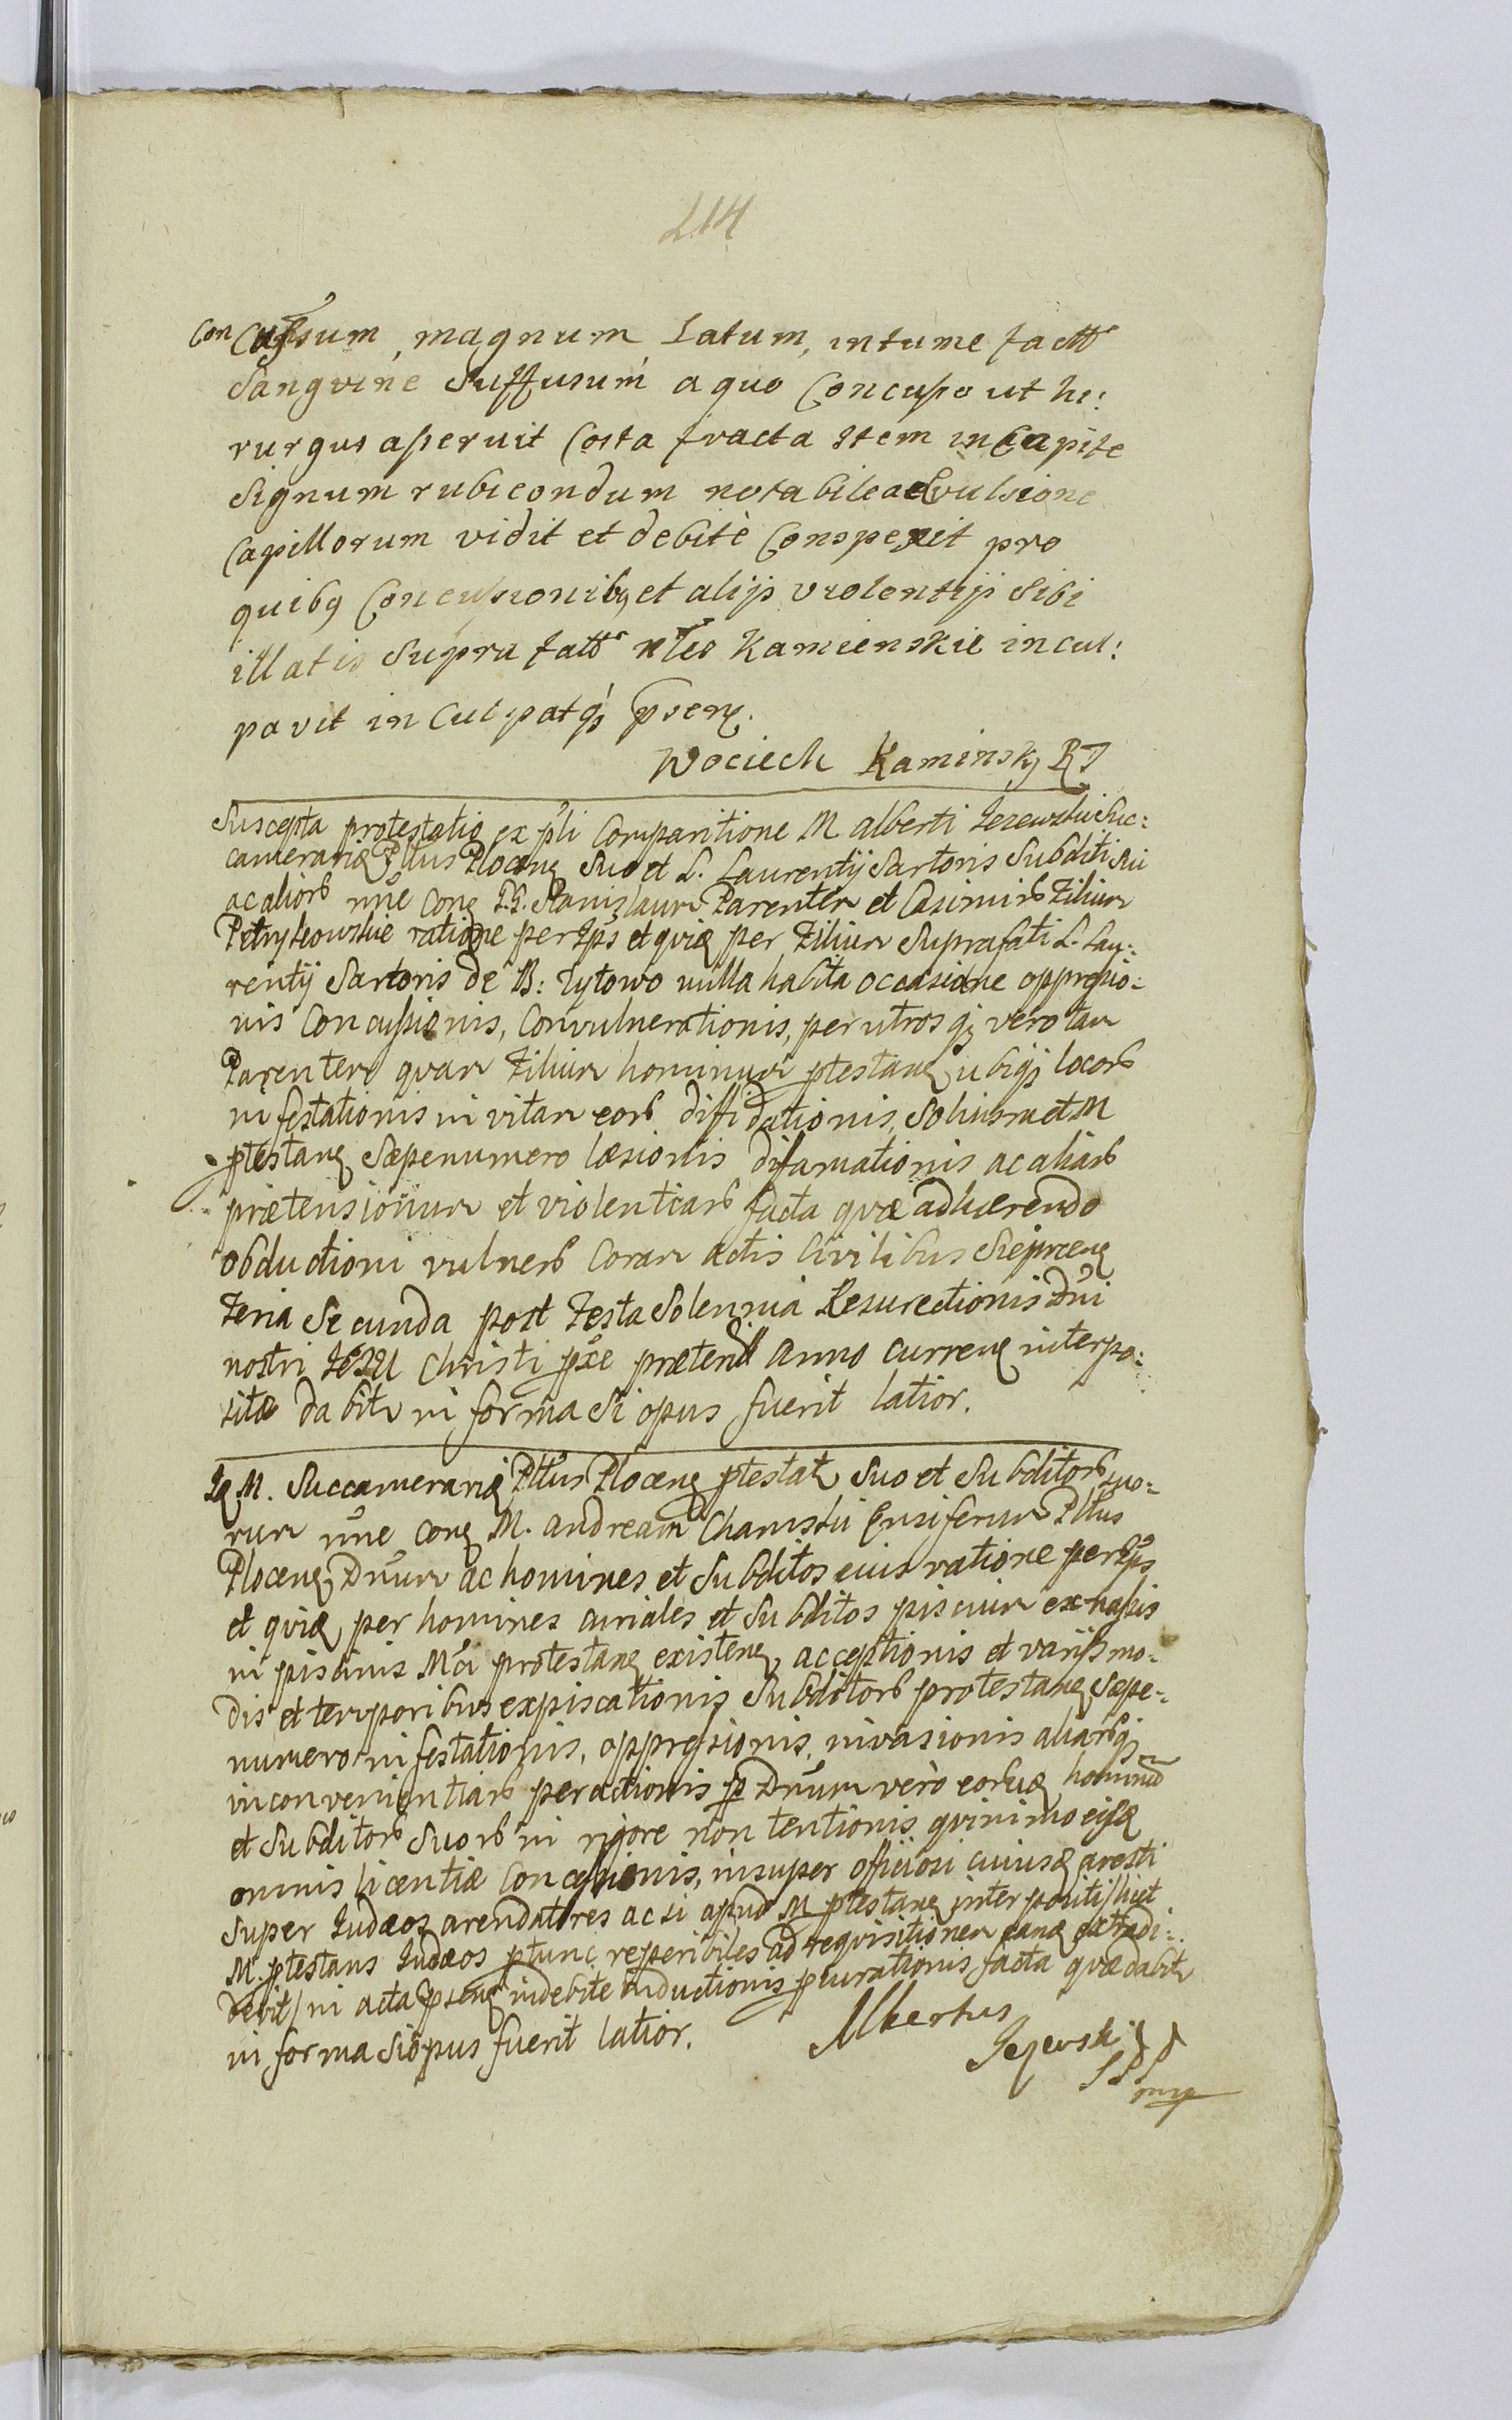 214
Concussum, magnum Latum, intume factt
Sangvine Suffusum a quo Concusso ut hi:
rurgus aperuit Costa fracta Item in Capite
Signum rubicondum notabile a Evulsione
Capillorum vidit et debitè Conspexit pro
quibq Concussionibq et alijs violentijs Sibi
illatis Supra fatt Kamienskie incul:
pavit inculpatq psenq.
Wociech Kaminsky RT
Suscepta protestatio ex pli Comparitione M Alberti Jezewski Suc:
camerariq Plttus Plocenq Suo et L. Laurentij Sartoris Subditi sui
ac aliorb nne Conq G.G. Stanislaum Parentem et Casimirb Filium
Petrykowskie ratione per Ips et quiq per Filium Suprafati L. Lau:
rentij Sartoris de B: Tytowo nulla habita occasione oppressio:
nis Concussionis, Convulnerationis, per utrosq vero tam
Parentem quam Filium hominum ptestanq ubiqs locorb
infestationis in vitam eorb diffidationis, Solius met M
ptestanq Sæpenumero læsionis difamationis ac aliarb
prætensionum et violentiarb facta quæ adhærendo
obductioni vulnerb Coram actis Civilibus Sieprcenq
Feria Secunda post Festa Solennia Resurectionis Dni
nostri JESU Christi pxe præterit anno currenq interpo:
sitæ dabitr in forma Si opus fuerit latior.
Iq M. Succamerariq Plttus Plocenq ptestatr Suo et Subditorb suo:
rum nne Conq M. Andream Chamski Ensiferum Plttus
Plocenq Dnum ac homines et Subditos eius ratione per Ips
et quiq per homines curiales et Subditos piscium ex nassis
in piscinis Mci protestanq existenq acceptionis et varijs mo:
dis et temporibus expiscationis Subditorb protestanq Sæpe:
numero infestationis, oppressionis, invasionis aliarbq
inconvenientiarb peractionis p Dnum verò eorbdq hominu
et Subditorb Suorb in rigore non tentionis quinimo eisq
omnis licentiæ Concessionis, insuper officiosi cuiusq aresti
Super Judæos arendatores ac si apud M ptestanq interpositi /licet
M. ptestans Judæos ptunc reperibiles ad requisitionem eanq extradi:
derit/ in acta psenq indebitè inductionis pcurationis facta quæ dabitr
in forma Si opus fuerit latior.
Albertus
Jezewski
SPP
mp